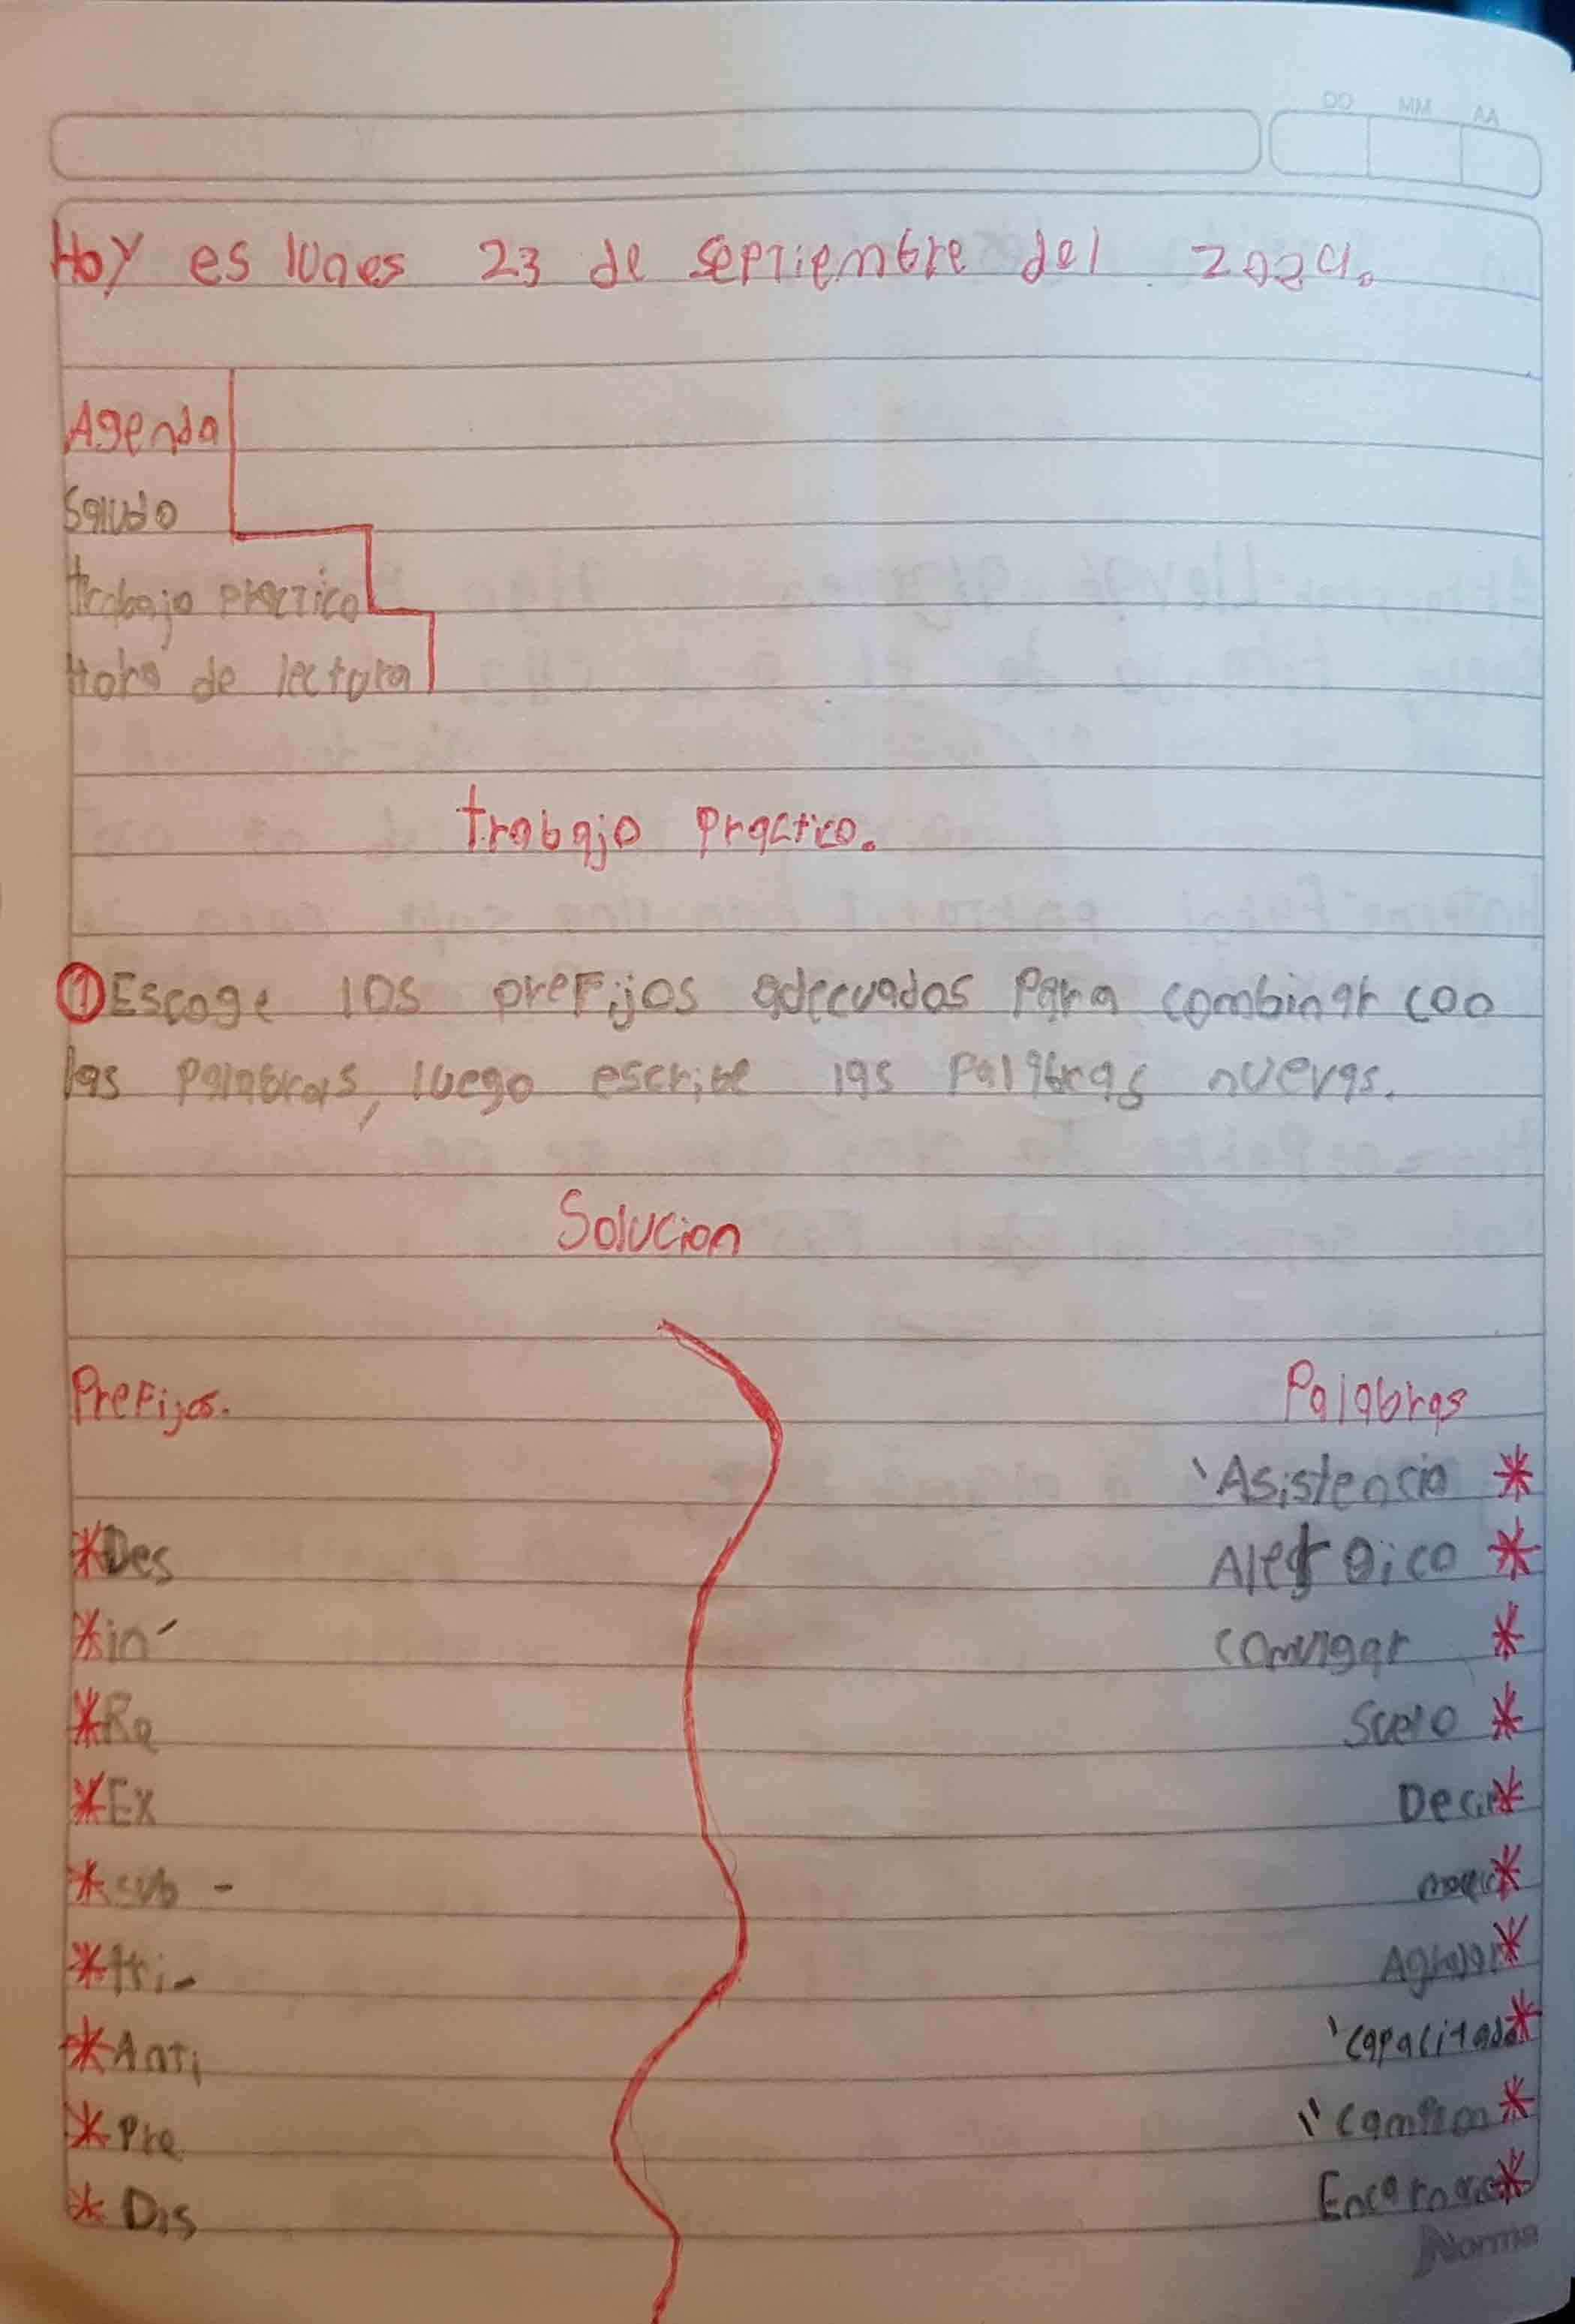 DD MM AA
Hoy es lunes 23 de septiembre del 2024.
Agenda
Saludo
trabajo practico
Hora de lectura
trabajo practico.
1 Escoge los prefijos adecuados para combinar con
las palabras, luego escribe las palabras nuevas.
Solucion
Prefijos.
Palabras
Asistencia *
*Des
Alergico *
*in
comulgar *
*Re
Suelo *
*Ex
Decir*
*sub -
*
*tri-
Agradar*
*Anti
capacitado*
*Pre
Campeon*
*Dis
Encarnar*
Norma